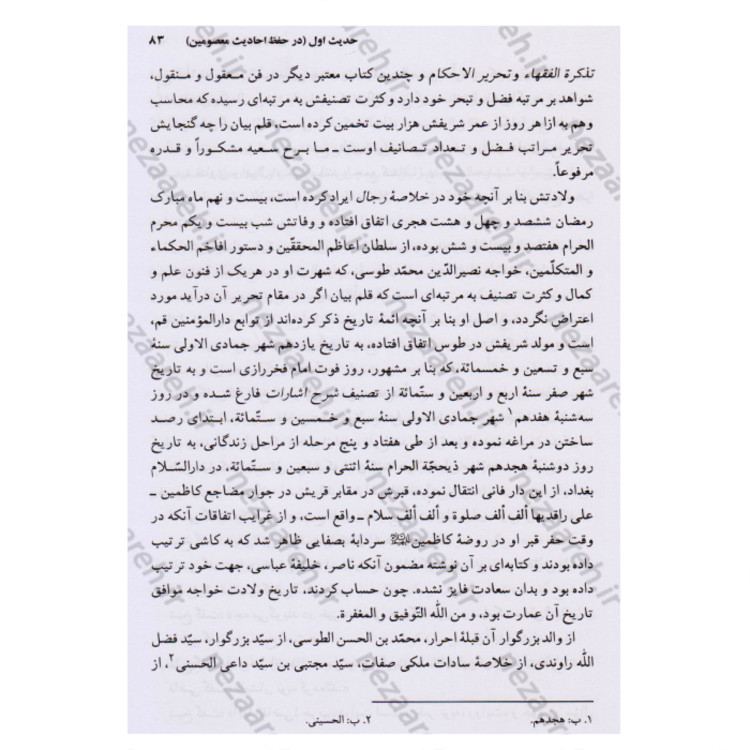 حدیث اول (در حفظ احادیث معصومین) ۸۳
تذکرة الفقهاء و تحریر الاحکام و چندین کتاب معتبر دیگر در فن معقول و منقول،
شواهد بر مرتبه فضل و تبحر خود دارد و کثرت تصنیفش به مرتبه‌ای رسیده که محاسب
وهم به ازا هر روز از عمر شریفش هزار بیت تخمین کرده است، قلم بیان را چه گنجایش
تحریر مراتب فضل و تعداد تصانیف اوست ـ ما برح سعیه مشکوراً و قدره
مرفوعاً.
ولادتش بنا بر آنچه خود در خلاصهٔ رجال ایراد کرده است، بیست و نهم ماه مبارک
رمضان ششصد و چهل و هشت هجری اتفاق افتاده و وفاتش شب بیست و یکم محرم
الحرام هفتصد و بیست و شش بوده، از سلطان اعاظم المحققّین و دستور افاخم الحکماء
و المتکلّمین، خواجه نصیرالدّین محمّد طوسی، که شهرت او در هر یک از فنون علم و
کمال و کثرت تصنیف به مرتبه‌ای است که قلم بیان اگر در مقام تحریر آن درآید مورد
اعتراض نگردد، و اصل او بنا بر آنچه ائمهٔ تاریخ ذکر کرده‌اند از توابع دارالمؤمنین قم،
است و مولد شریفش در طوس اتفاق افتاده، به تاریخ یازدهم شهر جمادی الاولی سنهٔ
سبع و تسعین و خمسمائة، که بنا بر مشهور، روز فوت امام فخررازی است و به تاریخ
شهر صفر سنهٔ اربع و اربعین و ستّمائة از تصنیف شرح اشارات فارغ شده و در روز
سه‌شنبهٔ هفدهم۱ شهر جمادی الاولی سنهٔ سبع و خمسین و ستّمائة، ابتدای رصد
ساختن در مراغه نموده و بعد از طی هفتاد و پنج مرحله از مراحل زندگانی، به تاریخ
روز دوشنبهٔ هجدهم شهر ذیحجّة الحرام سنهٔ اثنتی و سبعین و ستّمائة، در دارالسّلام
بغداد، از این دار فانی انتقال نموده، قبرش در مقابر قریش در جوار مضاجع کاظمین ـ
علی راقدیها ألف ألف صلوة و ألف ألف سلام ـ واقع است، و از غرایب اتفاقات آنکه در
وقت حفر قبر او در روضهٔ کاظمین سردابهٔ بصفایی ظاهر شد که به کاشی ترتیب
داده بودند و کتابه‌ای بر آن نوشته مضمون آنکه ناصر، خلیفهٔ عباسی، جهت خود ترتیب
داده بود و بدان سعادت فایز نشده. چون حساب کردند، تاریخ ولادت خواجه موافق
تاریخ آن عمارت بود، و من الله التّوفیق و المغفرة.
از والد بزرگوار آن قبلهٔ احرار، محمّد بن الحسن الطوسی، از سیّد بزرگوار، سیّد فضل
الله راوندی، از خلاصهٔ سادات ملکی صفات، سیّد مجتبی بن سیّد داعی الحسنی۲، از
۱. ب: هجدهم. ۲. ب: الحسینی.
nezaareh.ir